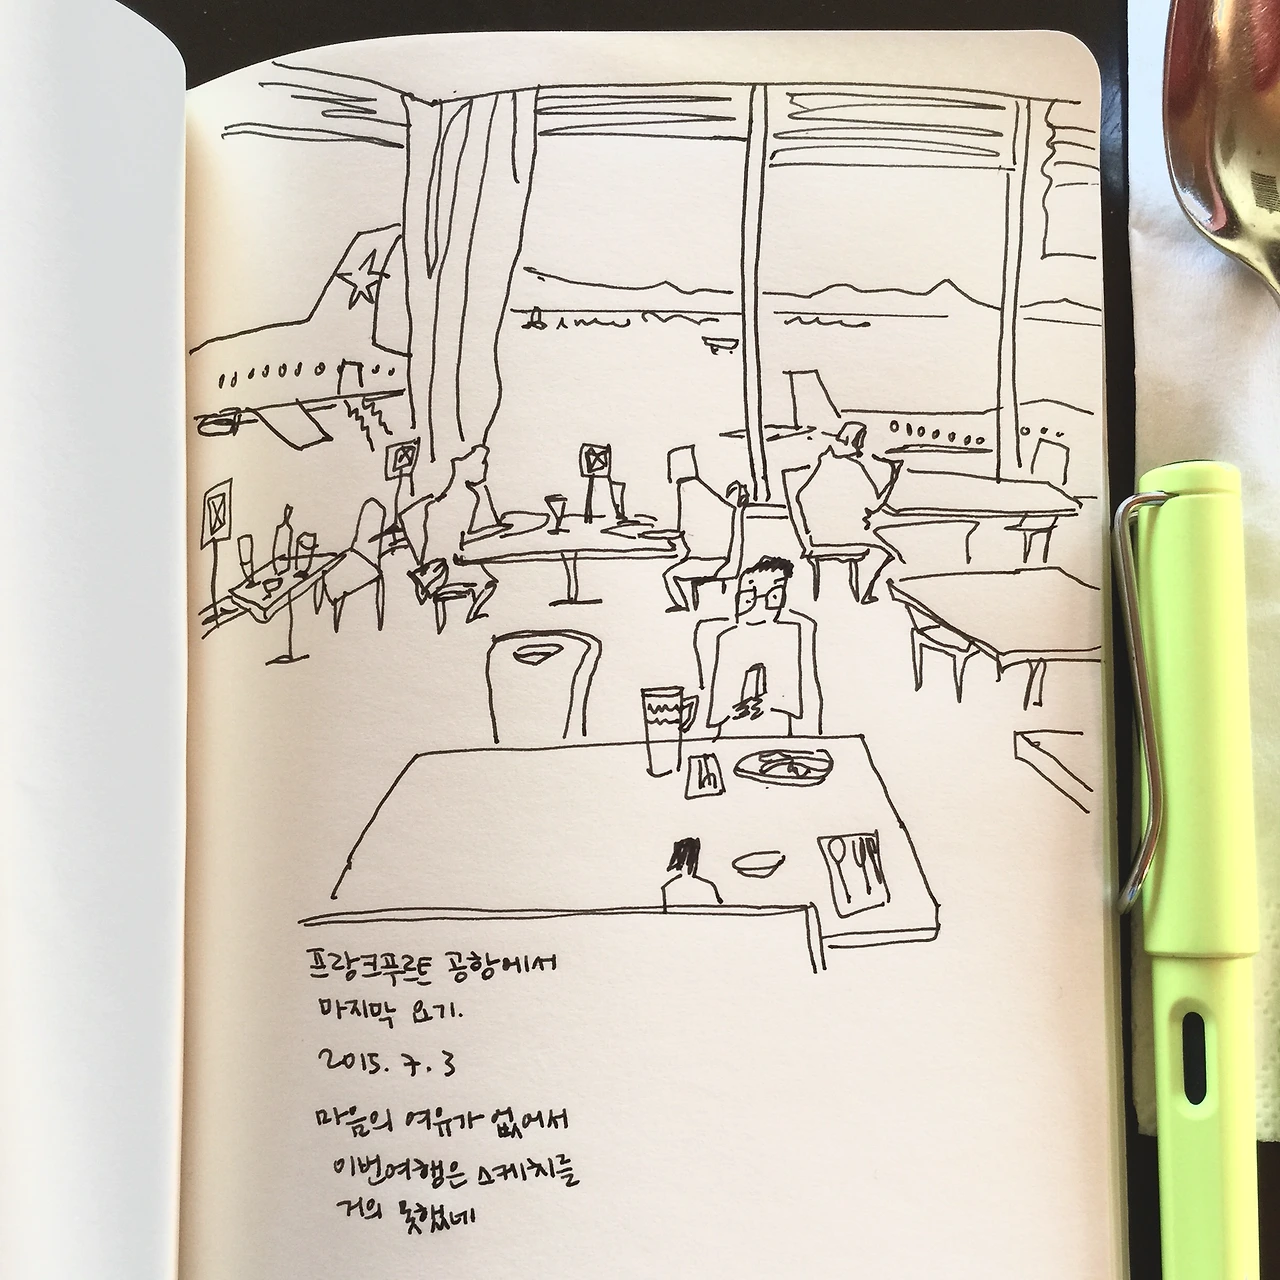 프랑크푸르트 공항에서
마지막 요기.
2015. 7. 3
마음의 여유가 없어서
이번여행은 스케치를
거의 못했네